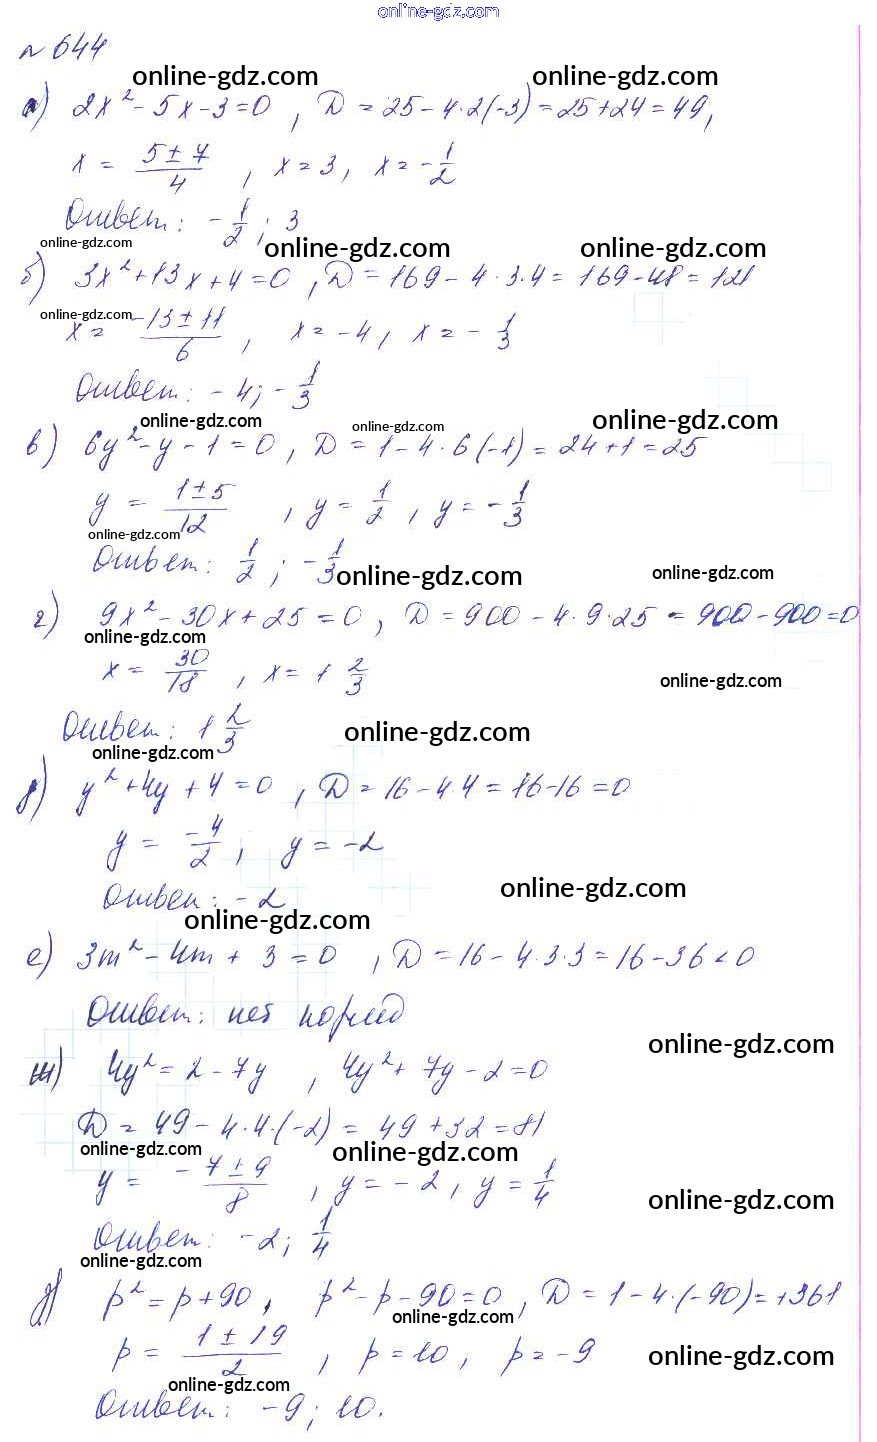 online-gdz.com
№ 644
online-gdz.com online-gdz.com
а) 2x² - 5x - 3 = 0, D = 25 - 4·2(-3) = 25 + 24 = 49,
x = (5 ± 7)/4, x = 3, x = -1/2
Ответ: -1/2; 3
online-gdz.com online-gdz.com online-gdz.com
б) 3x² + 13x + 4 = 0, D = 169 - 4·3·4 = 169 - 48 = 121
online-gdz.com
x = (-13 ± 11)/6, x = -4, x = -1/3
Ответ: -4; -1/3
online-gdz.com online-gdz.com online-gdz.com
в) 6y² - y - 1 = 0, D = 1 - 4·6(-1) = 24 + 1 = 25
y = (1 ± 5)/12, y = 1/2, y = -1/3
online-gdz.com
Ответ: 1/2; -1/3
online-gdz.com online-gdz.com
г) 9x² - 30x + 25 = 0, D = 900 - 4·9·25 = 900 - 900 = 0
online-gdz.com
x = 30/18, x = 1 2/3
online-gdz.com
Ответ: 1 2/3
online-gdz.com
online-gdz.com
д) y² + 4y + 4 = 0, D = 16 - 4·4 = 16 - 16 = 0
y = -4/2, y = -2
Ответ: -2
online-gdz.com
online-gdz.com
е) 3m² - 4m + 3 = 0, D = 16 - 4·3·3 = 16 - 36 < 0
Ответ: нет корней
online-gdz.com
ж) 4y² = 2 - 7y, 4y² + 7y - 2 = 0
D = 49 - 4·4·(-2) = 49 + 32 = 81
online-gdz.com online-gdz.com
y = (-7 ± 9)/8, y = -2, y = 1/4
online-gdz.com
Ответ: -2; 1/4
online-gdz.com
p² = p + 90, p² - p - 90 = 0, D = 1 - 4·(-90) = +361
online-gdz.com
p = (1 ± 19)/2, p = 10, p = -9
online-gdz.com
online-gdz.com
Ответ: -9; 10.